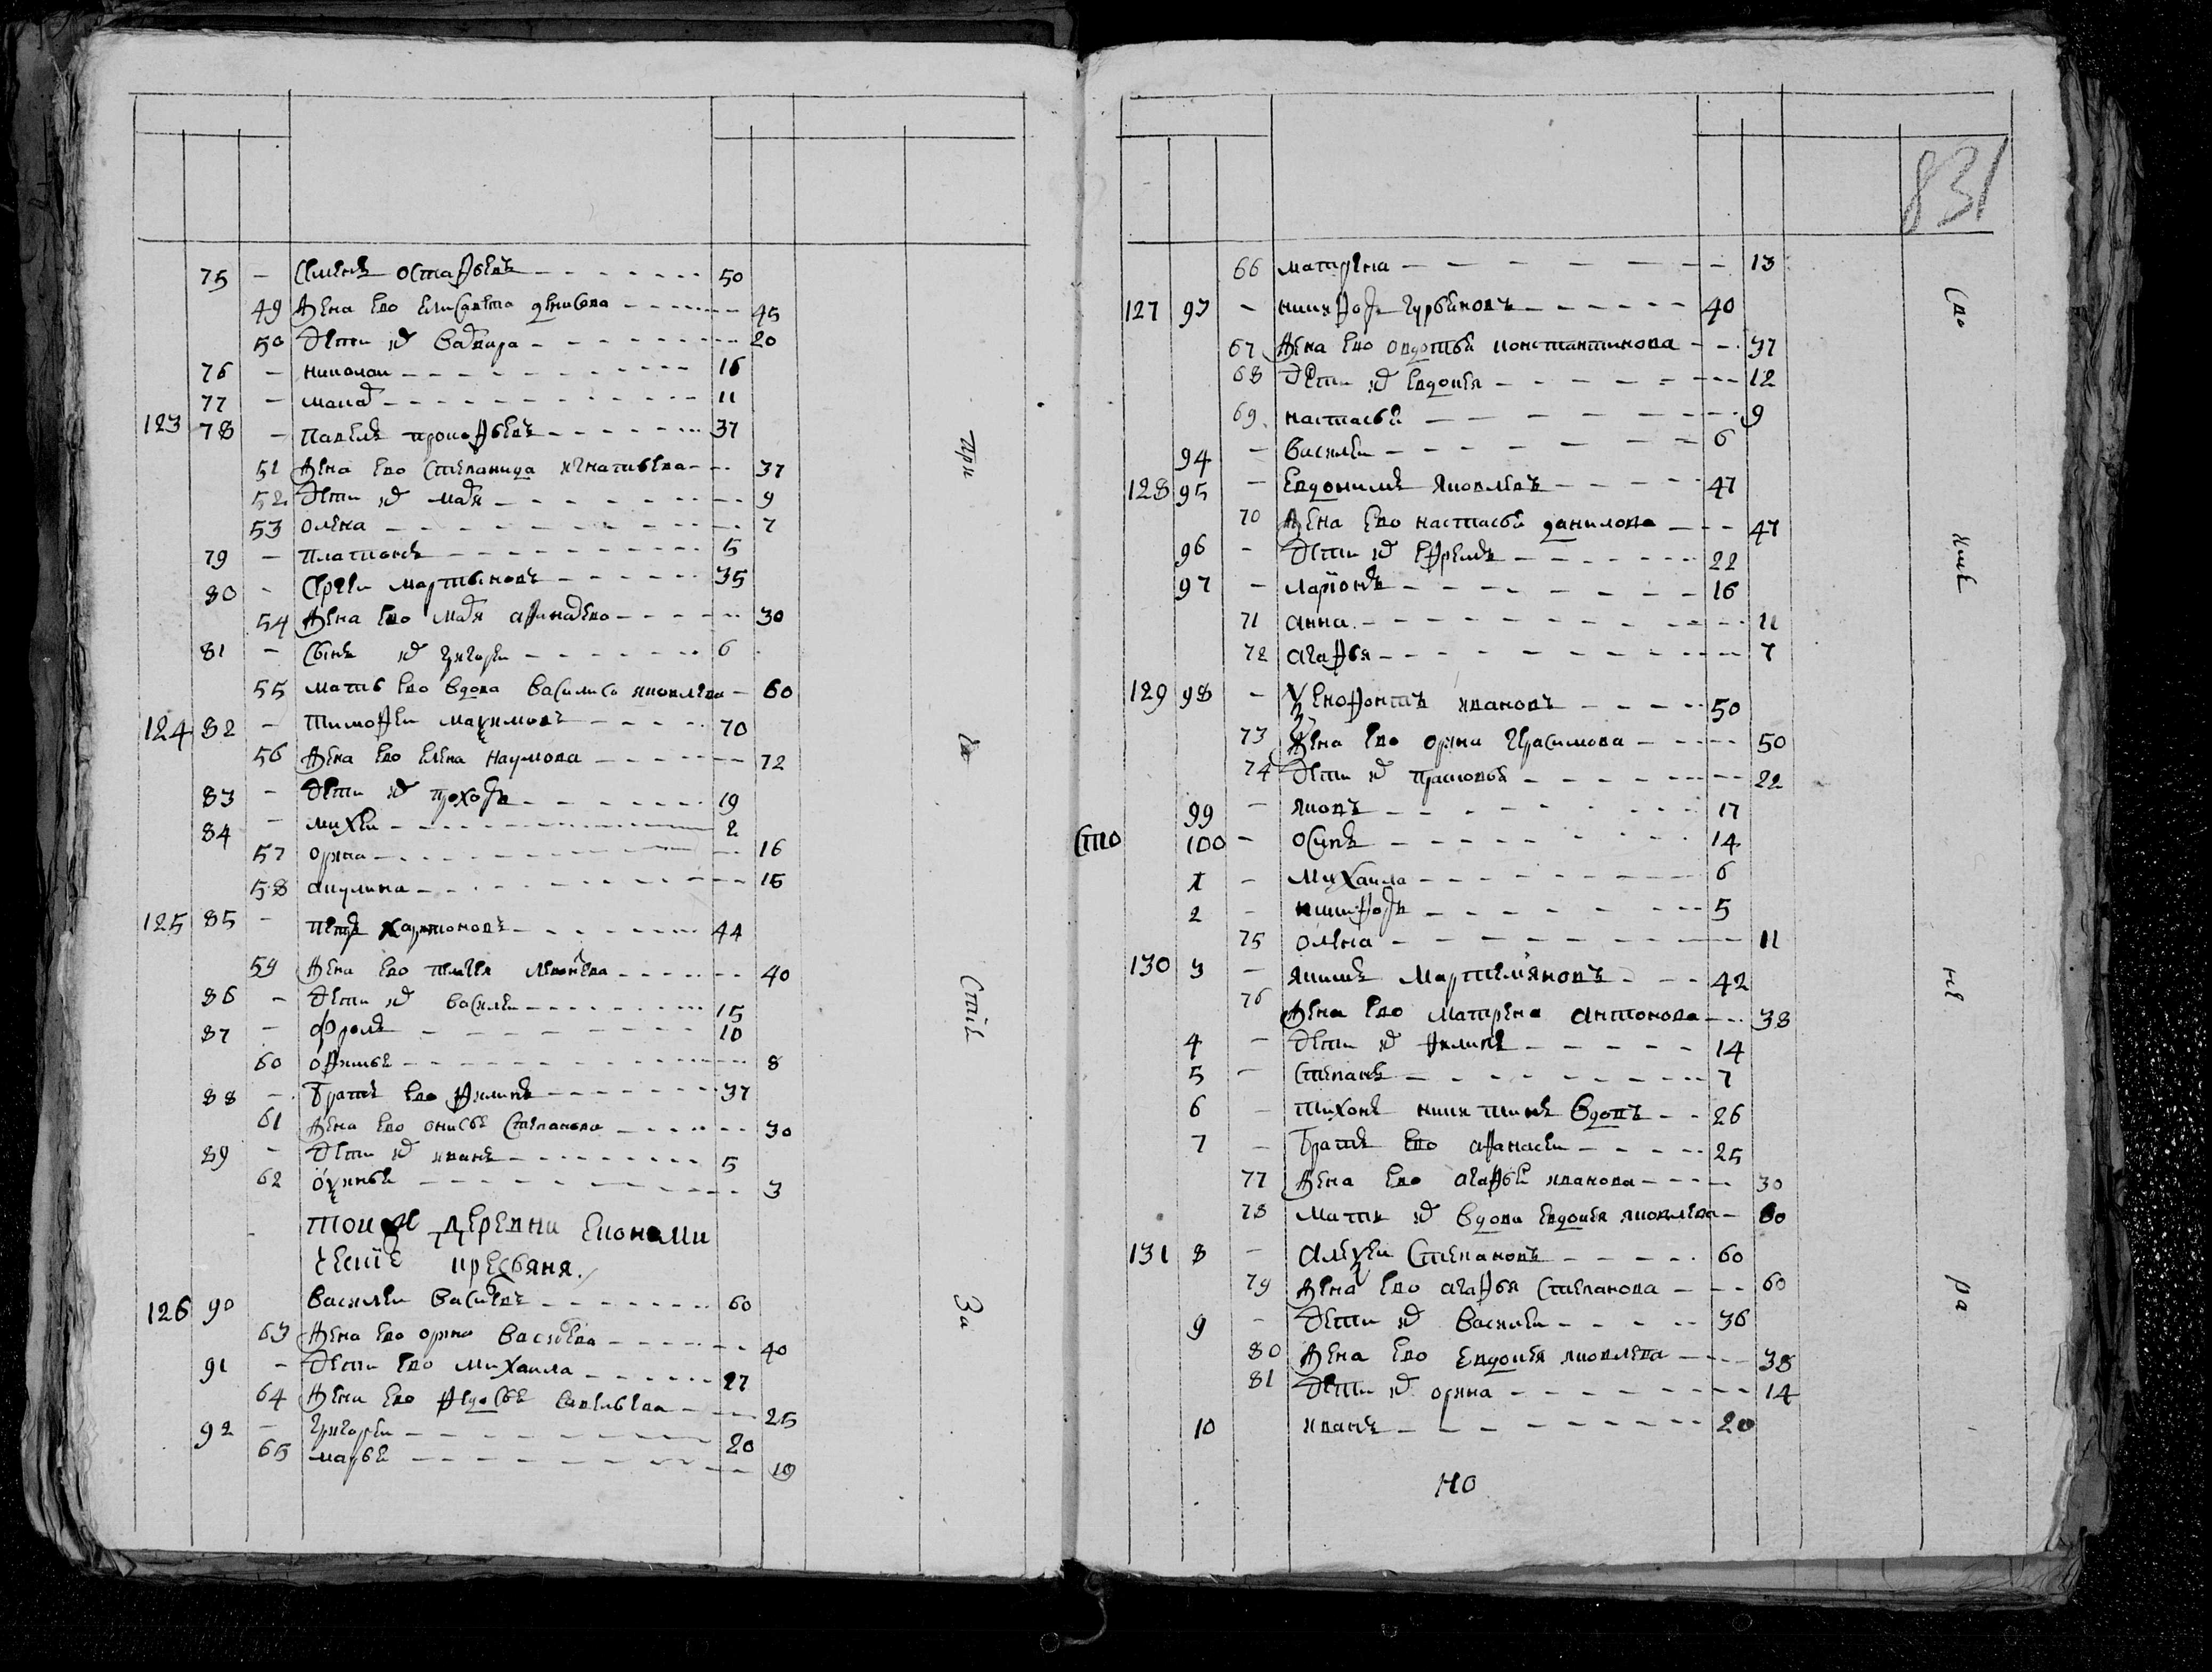 75 - Семенъ остафьевъ - 50
49 жена ево елисавета денисова - 45
50 дети их варвара - 20
76 - николаи - 16
77 - макар - 11
123 78 - павелъ прокофьевъ - 37
51 жена ево степанида игнатьева - 37
52 дети их марья - 9
53 олена - 7
79 - платонъ - 5
80 - сергеи мартыновъ - 35
54 жена ево марья - 30
81 - сынъ их григореи - 6
55 мать ево вдова василиса яковлева - 60
124 82 - тимофеи маѯимовъ - 70
56 жена ево елена наумова - 72
83 - дети их прохоръ - 19
84 - михеи - 2
57 орина - 16
58 акулина - 15
125 85 - петръ харитоновъ - 44
59 жена ево пелагея левонтева - 40
86 - дети их василеи - 15
87 - фролъ - 10
60 офимья - 8
88 - братъ ево филипъ - 37
61 жена ево онисья степанова - 30
89 - дети их иванъ - 5
62 оѯинья - 3
тои ж деревни економи
ческие кресьяня
126 90 василеи васильевъ - 60
63 жена ево орина васильева - 40
91 - дети ево михаила - 27
64 жена ево федосья савельева - 25
92 - григореи - 20
65 марья - 10
при
во
Стiе
За
831
66 матрена - 13
127 93 - никифоръ - 40
67 жена ево овдотья константинова - 37
68 дети их евдокея - 12
69 настасья - 9
94 - василеи - 6
128 95 - евдокимъ яковлевъ - 47
70 жена ево настасья данилова - 47
96 - дети их ефремъ - 22
97 - ларионъ - 16
71 анна - 11
72 агафья - 7
129 98 - ѯенофонтъ ивановъ - 50
73 жена ево орина герасимова - 50
74 дети их прасковья - 22
99 - яковъ - 17
Сто 100 - осипъ - 14
1 - михаила - 6
2 - никифоръ - 5
75 олена - 11
130 3 - якимъ мартемьяновъ - 42
76 жена ево матрена антонова - 38
4 - дети их филипъ - 14
5 - степанъ - 7
6 - тихонъ никитинъ вдовъ - 26
7 - братъ ево афанасеи - 25
77 жена ево агафья иванова - 30
78 мать их вдова евдокея яковлева - 60
131 8 - алеѯеи степановъ - 60
79 жена ево агафья степанова - 60
9 - дети их василеи - 36
80 жена ево евдокея яковлева - 38
81 дети их орина - 14
10 иванъ - 20
но
Сво
яще
не
ра